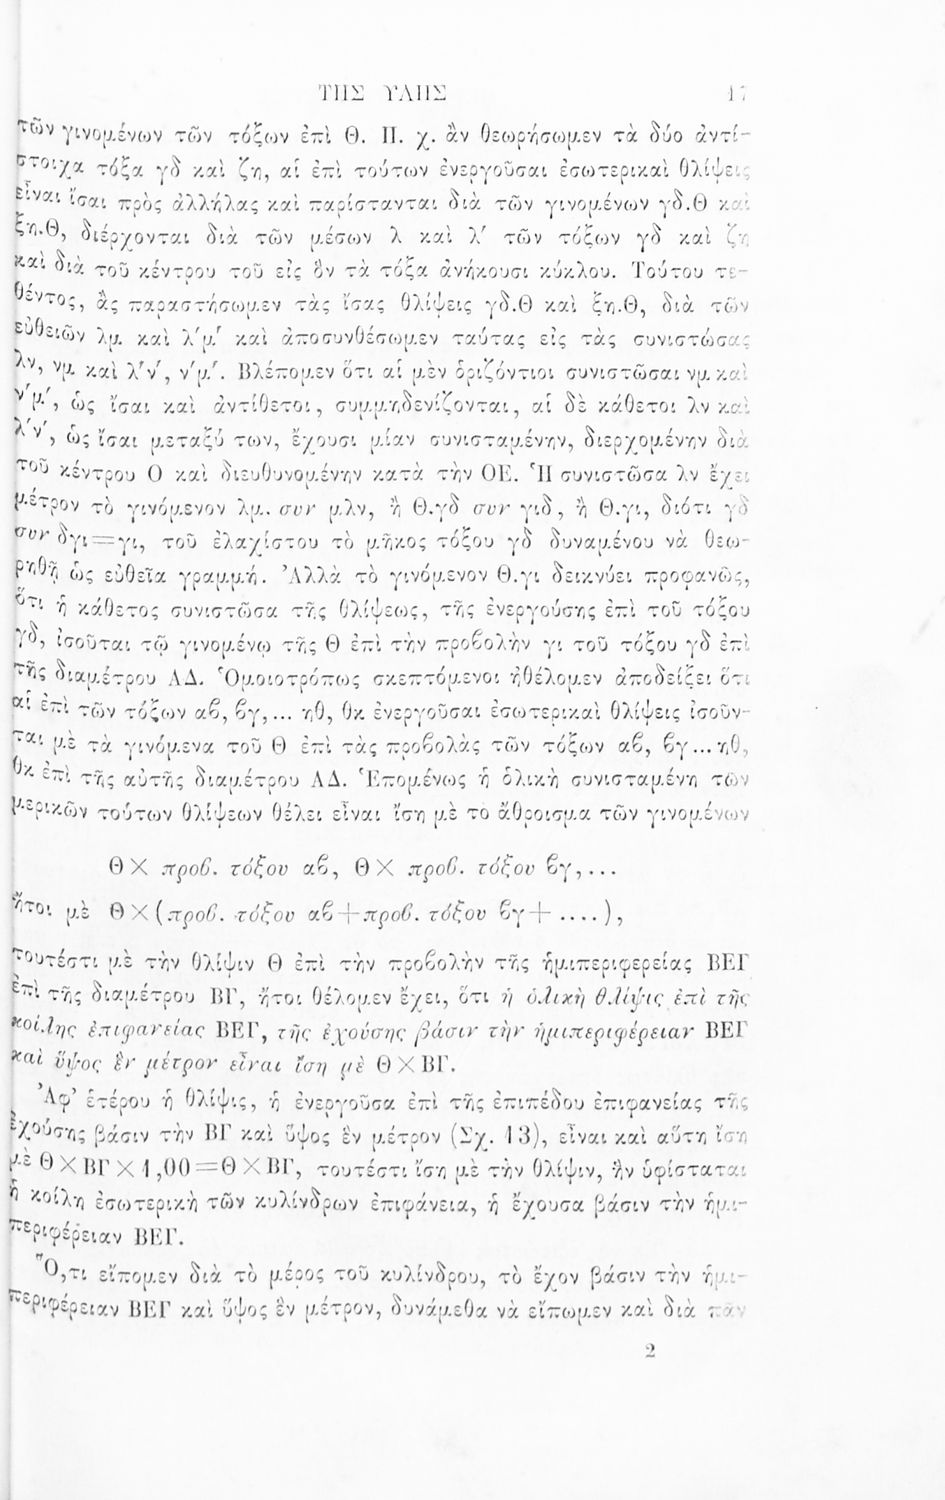 ΤΗΣ ΥΛΗΣ 17
τῶν γινομένων τῶν τόξων ἐπὶ Θ. Π. χ. ἂν θεωρήσωμεν τὰ δύο ἀντί-
στοιχα τόξα γδ καὶ ζη, αἱ ἐπὶ τούτων ἐνεργοῦσαι ἐσωτερικαὶ θλίψεις
εἶναι ἴσαι πρὸς ἀλλήλας καὶ παρίστανται διὰ τῶν γινομένων γδ.Θ καὶ
ξη.Θ, διέρχονται διὰ τῶν μέσων λ καὶ λ' τῶν τόξων γδ καὶ ζη
καὶ διὰ τοῦ κέντρου τοῦ εἰς ὃν τὰ τόξα ἀνήκουσι κύκλου. Τούτου τε-
θέντος, ἂς παραστήσωμεν τὰς ἴσας θλίψεις γδ.Θ καὶ ξη.Θ, διὰ τῶν
εὐθειῶν λμ. καὶ λ'μ' καὶ ἀποσυνθέσωμεν ταύτας εἰς τὰς συνιστώσας
λν, νμ καὶ λ'ν', ν'μ'. Βλέπομεν ὅτι αἱ μὲν ὁριζόντιοι συνιστῶσαι νμ καὶ
ν'μ', ὡς ἴσαι καὶ ἀντίθετοι, συμμηδενίζονται, αἱ δὲ κάθετοι λν καὶ
λ'ν', ὡς ἴσαι μεταξύ των, ἔχουσι μίαν συνισταμένην, διερχομένην διὰ
τοῦ κέντρου Ο καὶ διευθυνομένην κατὰ τὴν ΟΕ. Ἡ συνιστῶσα λν ἔχει
μέτρον τὸ γινόμενον λμ. συν μλν, ἢ Θ.γδ συν γιδ, ἢ Θ.γι, διότι γδ
συν δγι=γι, τοῦ ἐλαχίστου τὸ μῆκος τόξου γδ δυναμένου νὰ θεω-
ρηθῇ ὡς εὐθεῖα γραμμή. Ἀλλὰ τὸ γινόμενον Θ.γι δεικνύει προφανῶς,
ὅτι ἡ κάθετος συνιστῶσα τῆς θλίψεως, τῆς ἐνεργούσης ἐπὶ τοῦ τόξου
γδ, ἰσοῦται τῷ γινομένῳ τῆς Θ ἐπὶ τὴν προβολὴν γι τοῦ τόξου γδ ἐπὶ
τῆς διαμέτρου ΑΔ. Ὁμοιοτρόπως σκεπτόμενοι ἠθέλομεν ἀποδείξει ὅτι
αἱ ἐπὶ τῶν τόξων αβ, βγ,... ηθ, θκ ἐνεργοῦσαι ἐσωτερικαὶ θλίψεις ἰσοῦν-
ται μὲ τὰ γινόμενα τοῦ Θ ἐπὶ τὰς προβολὰς τῶν τόξων αβ, βγ...ηθ,
θκ ἐπὶ τῆς αὐτῆς διαμέτρου ΑΔ. Ἑπομένως ἡ ὁλικὴ συνισταμένη τῶν
μερικῶν τούτων θλίψεων θέλει εἶναι ἴση μὲ τὸ ἄθροισμα τῶν γινομένων
Θ× προβ. τόξου αβ, Θ× προβ. τόξου βγ,...
ἤτοι μὲ Θ×(προβ. τόξου αβ+προβ. τόξου βγ+....),
τουτέστι μὲ τὴν θλίψιν Θ ἐπὶ τὴν προβολὴν τῆς ἡμιπεριφερείας ΒΕΓ
ἐπὶ τῆς διαμέτρου ΒΓ, ἤτοι θέλομεν ἔχει, ὅτι ἡ ὁλικὴ θλίψις ἐπὶ τῆς
κοίλης ἐπιφανείας ΒΕΓ, τῆς ἐχούσης βάσιν τὴν ἡμιπεριφέρειαν ΒΕΓ
καὶ ὕψος ἓν μέτρον εἶναι ἴση μὲ Θ×ΒΓ.
Ἀφ' ἑτέρου ἡ θλίψις, ἡ ἐνεργοῦσα ἐπὶ τῆς ἐπιπέδου ἐπιφανείας τῆς
ἐχούσης βάσιν τὴν ΒΓ καὶ ὕψος ἓν μέτρον (Σχ. 13), εἶναι καὶ αὕτη ἴση
μὲ Θ×ΒΓ×1,00=Θ×ΒΓ, τουτέστι ἴση μὲ τὴν θλίψιν, ἣν ὑφίσταται
ἡ κοίλη ἐσωτερικὴ τῶν κυλίνδρων ἐπιφάνεια, ἡ ἔχουσα βάσιν τὴν ἡμι-
περιφέρειαν ΒΕΓ.
Ὅ,τι εἴπομεν διὰ τὸ μέρος τοῦ κυλίνδρου, τὸ ἔχον βάσιν τὴν ἡμι-
περιφέρειαν ΒΕΓ καὶ ὕψος ἓν μέτρον, δυνάμεθα νὰ εἴπωμεν καὶ διὰ πᾶν
2